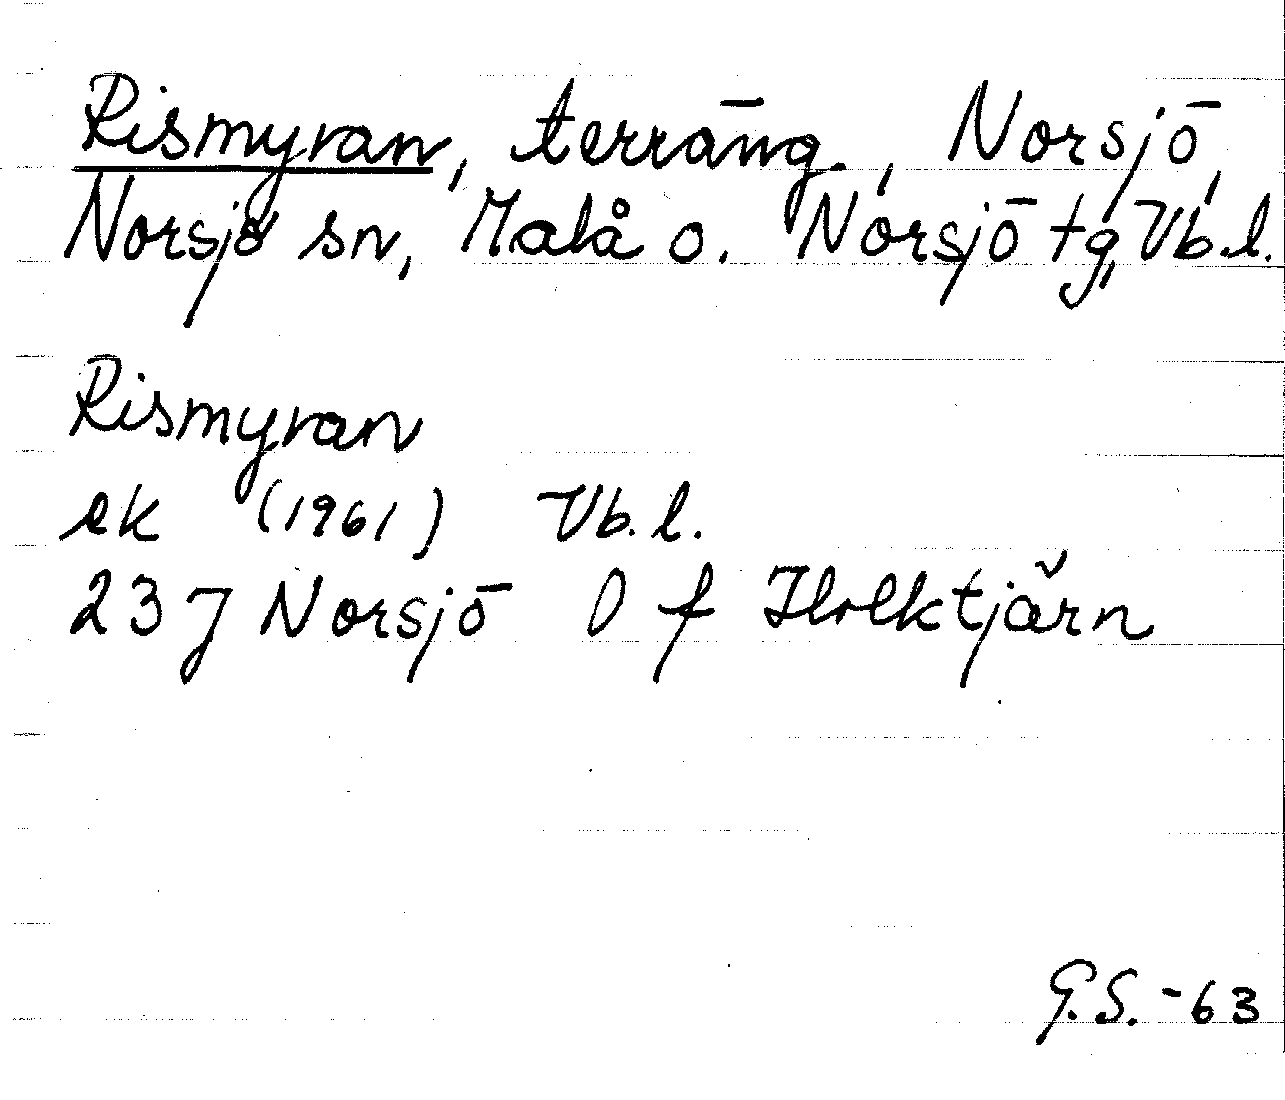 Rismyran, terräng., Norsjö,
Norsjö sn, Malå o. Norsjö tg, Vb.l.
Rismyran
ek (1961) Vb.l.
23 J Norsjö O f
G.S.-63